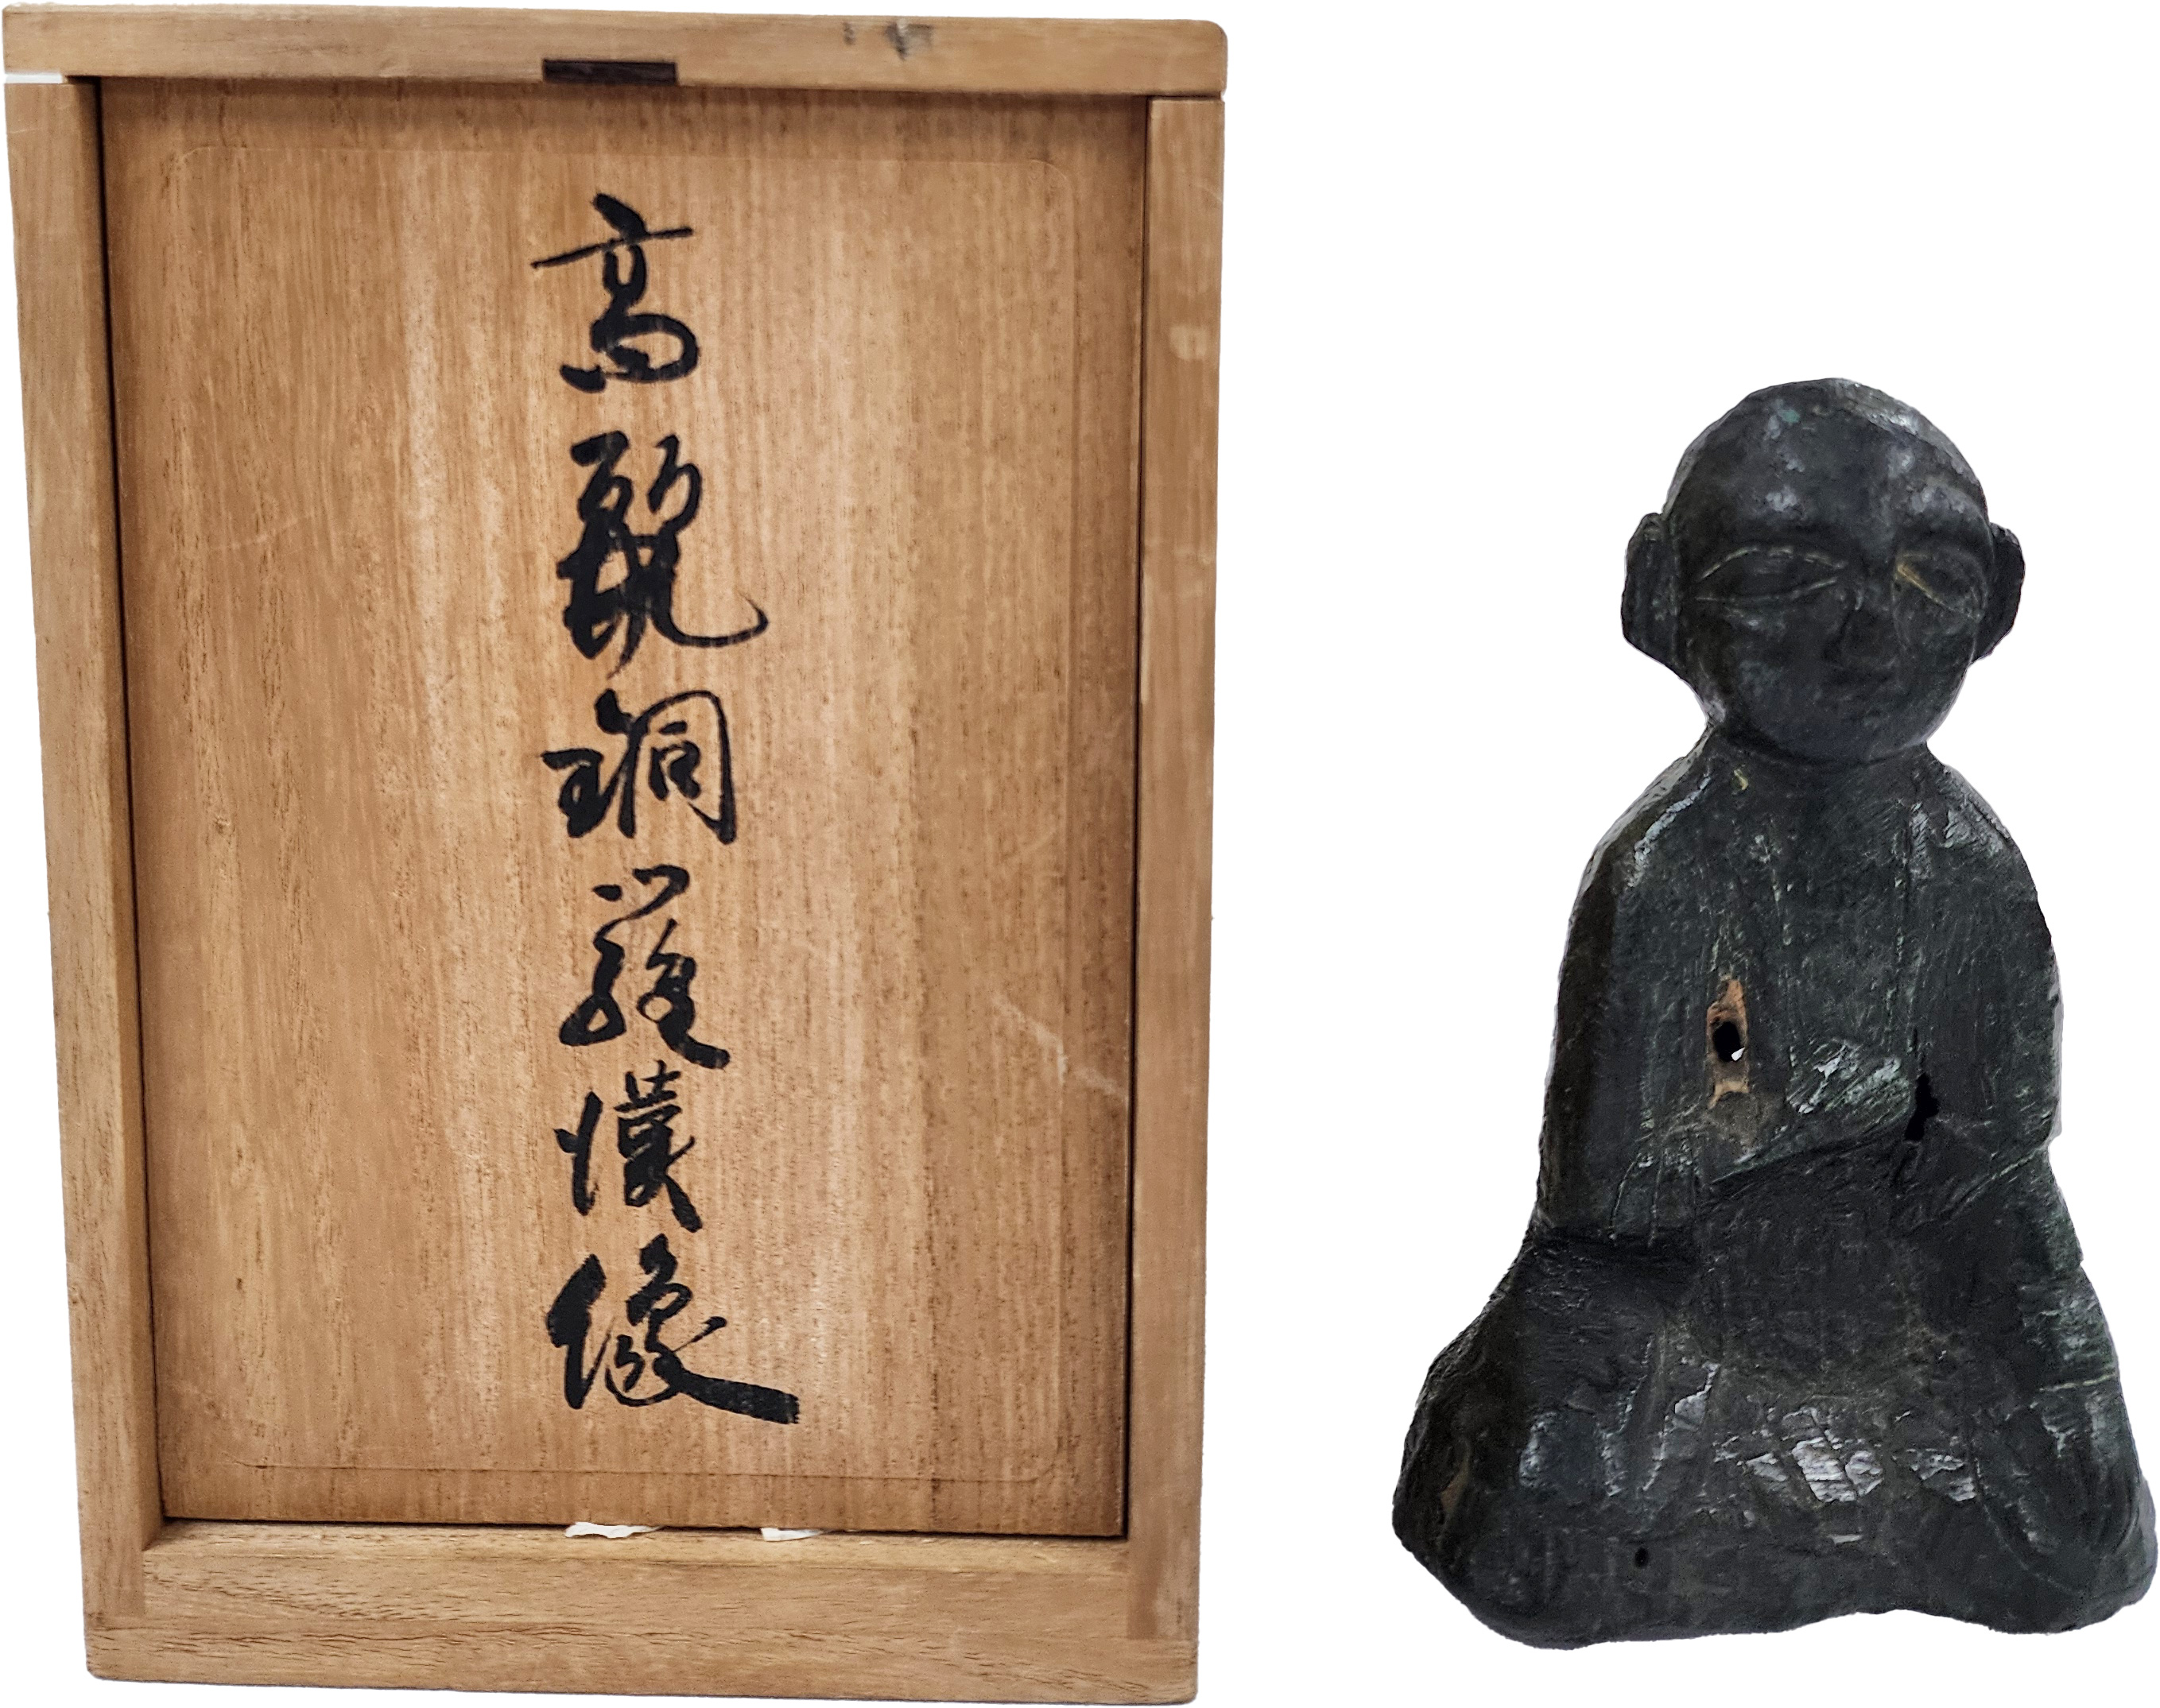 高麗銅羅漢像